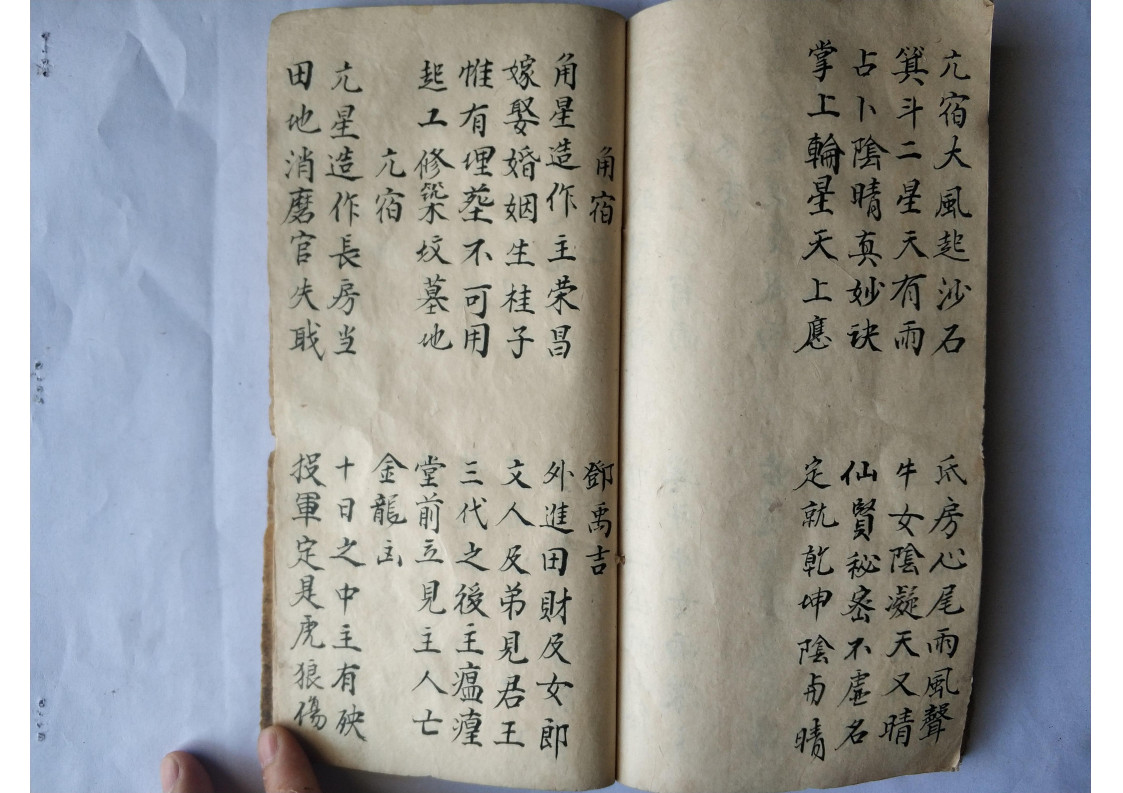 亢宿大風起沙石　氐房心尾雨風聲
箕斗二星天有雨　牛女陰凝天又晴
占卜陰晴真妙訣　仙賢秘密不虛名
掌上輪星天上應　定就乾坤陰与晴
角宿　鄧禹吉
角星造作主荣昌　外進田財及女郎
嫁娶婚姻生桂子　文人及弟見君王
惟有埋塟不可用　三代之後主瘟㾮
起工修築坟墓地　堂前立見主人亡
亢宿　金龍
亢星造作長房当　十日之中主有砄
田地消磨官失戝　投軍定是虎狼傷